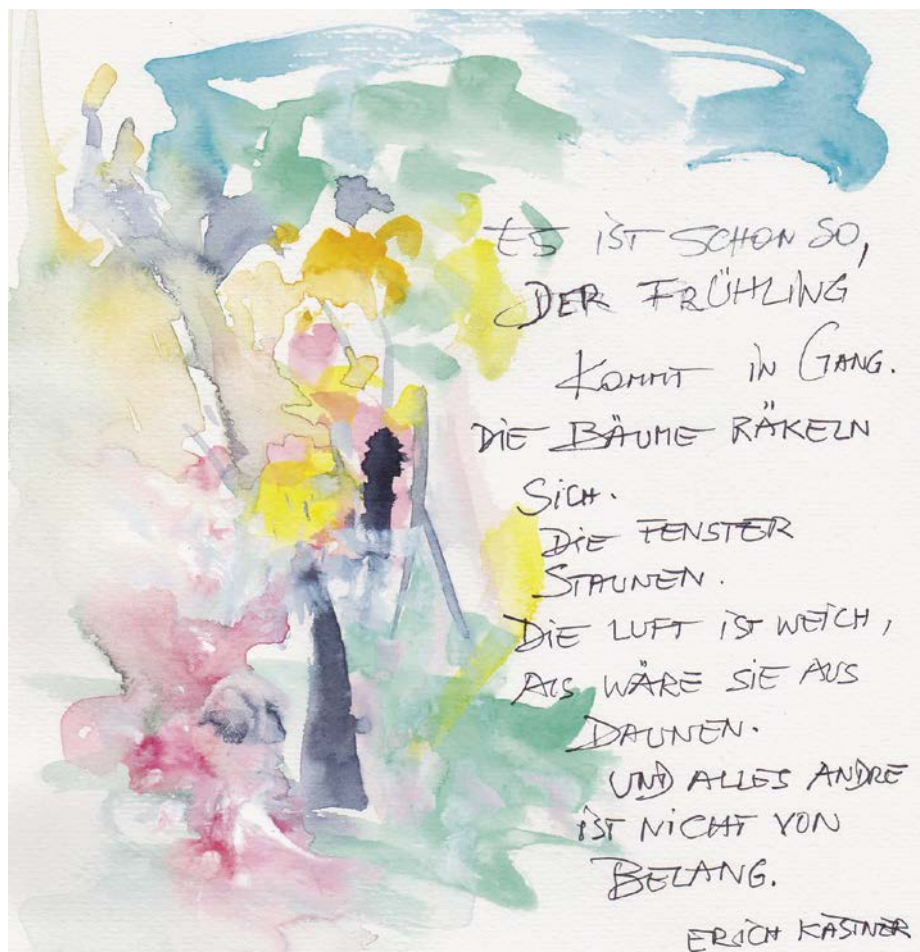 ES IST SCHON SO,
DER FRÜHLING
KOMMT IN GANG.
DIE BÄUME RÄKELN
SICH.
DIE FENSTER
STAUNEN.
DIE LUFT IST WEICH,
ALS WÄRE SIE AUS
DAUNEN.
UND ALLES ANDRE
IST NICHT VON
BELANG.
ERICH KÄSTNER